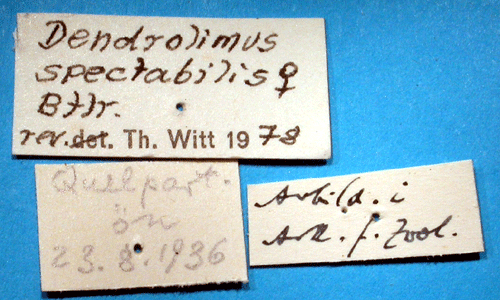 Dendrolimus
spectabilis ♀
Bttr.
rev. det. Th. Witt 1978
Quelpart.
ön
23.8.1936
Avbild. i
Ark. f. Zool.